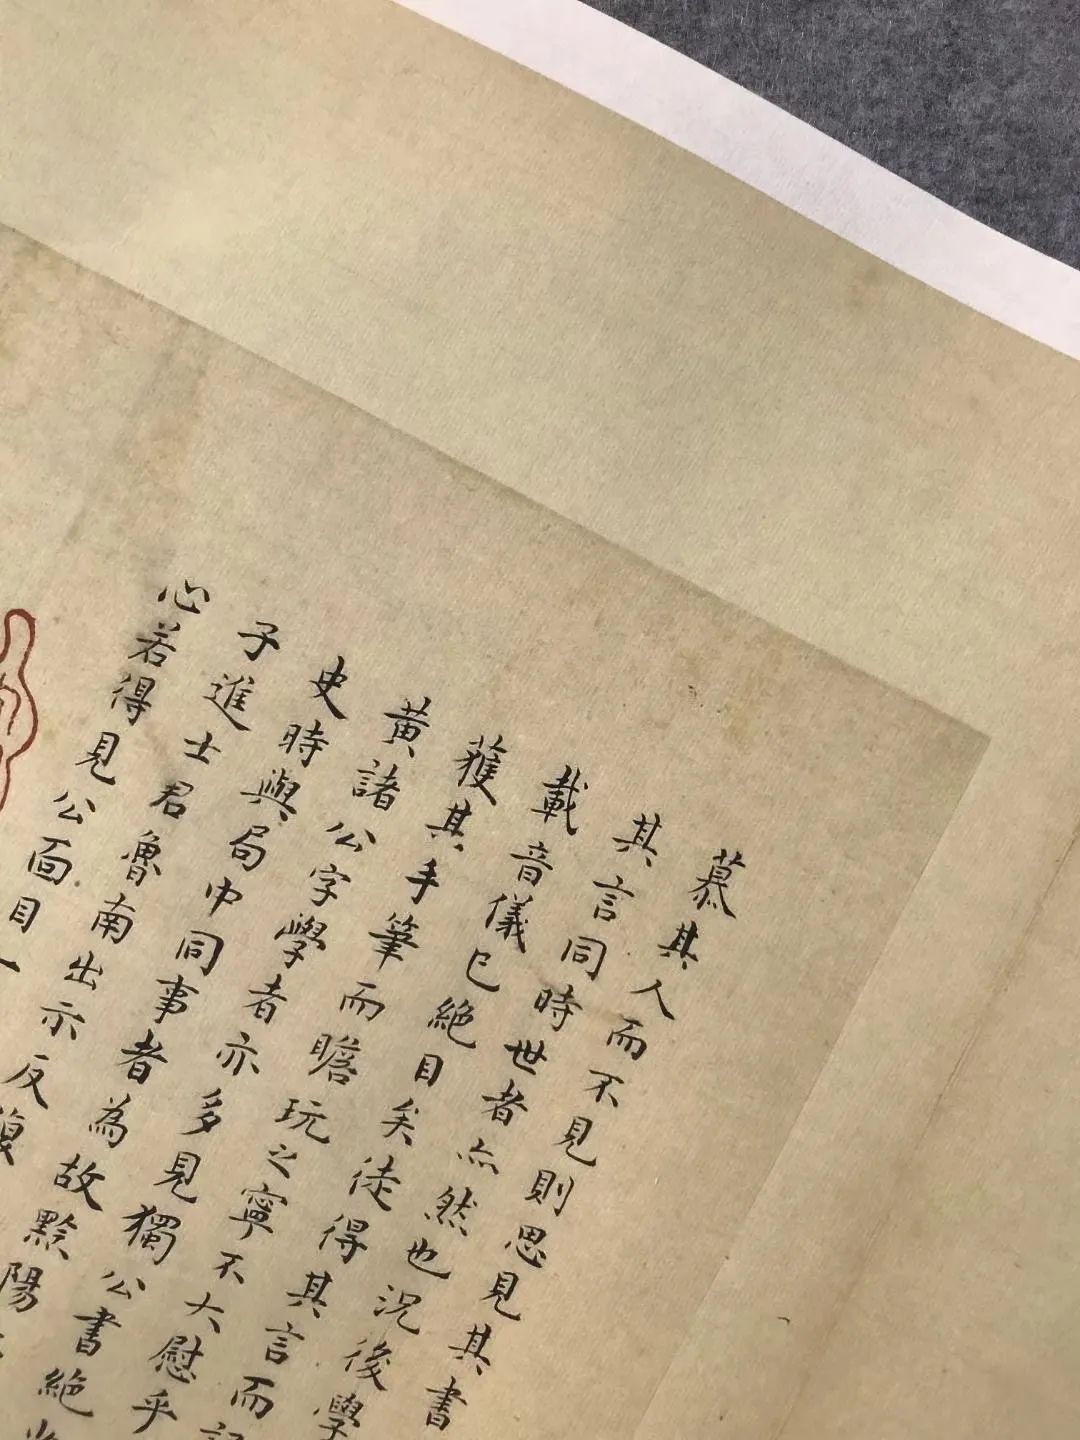 慕其人而不見則思見其書
其言同時世者亦然也況後學
載音儀已絕目矣徒得其言而
獲其手筆而瞻玩之寧不大慰乎
黃諸公字學者亦多見獨公書絕
史時與局中同事者為故黟陽
子進士君魯南出示反復
心若得見公面目一